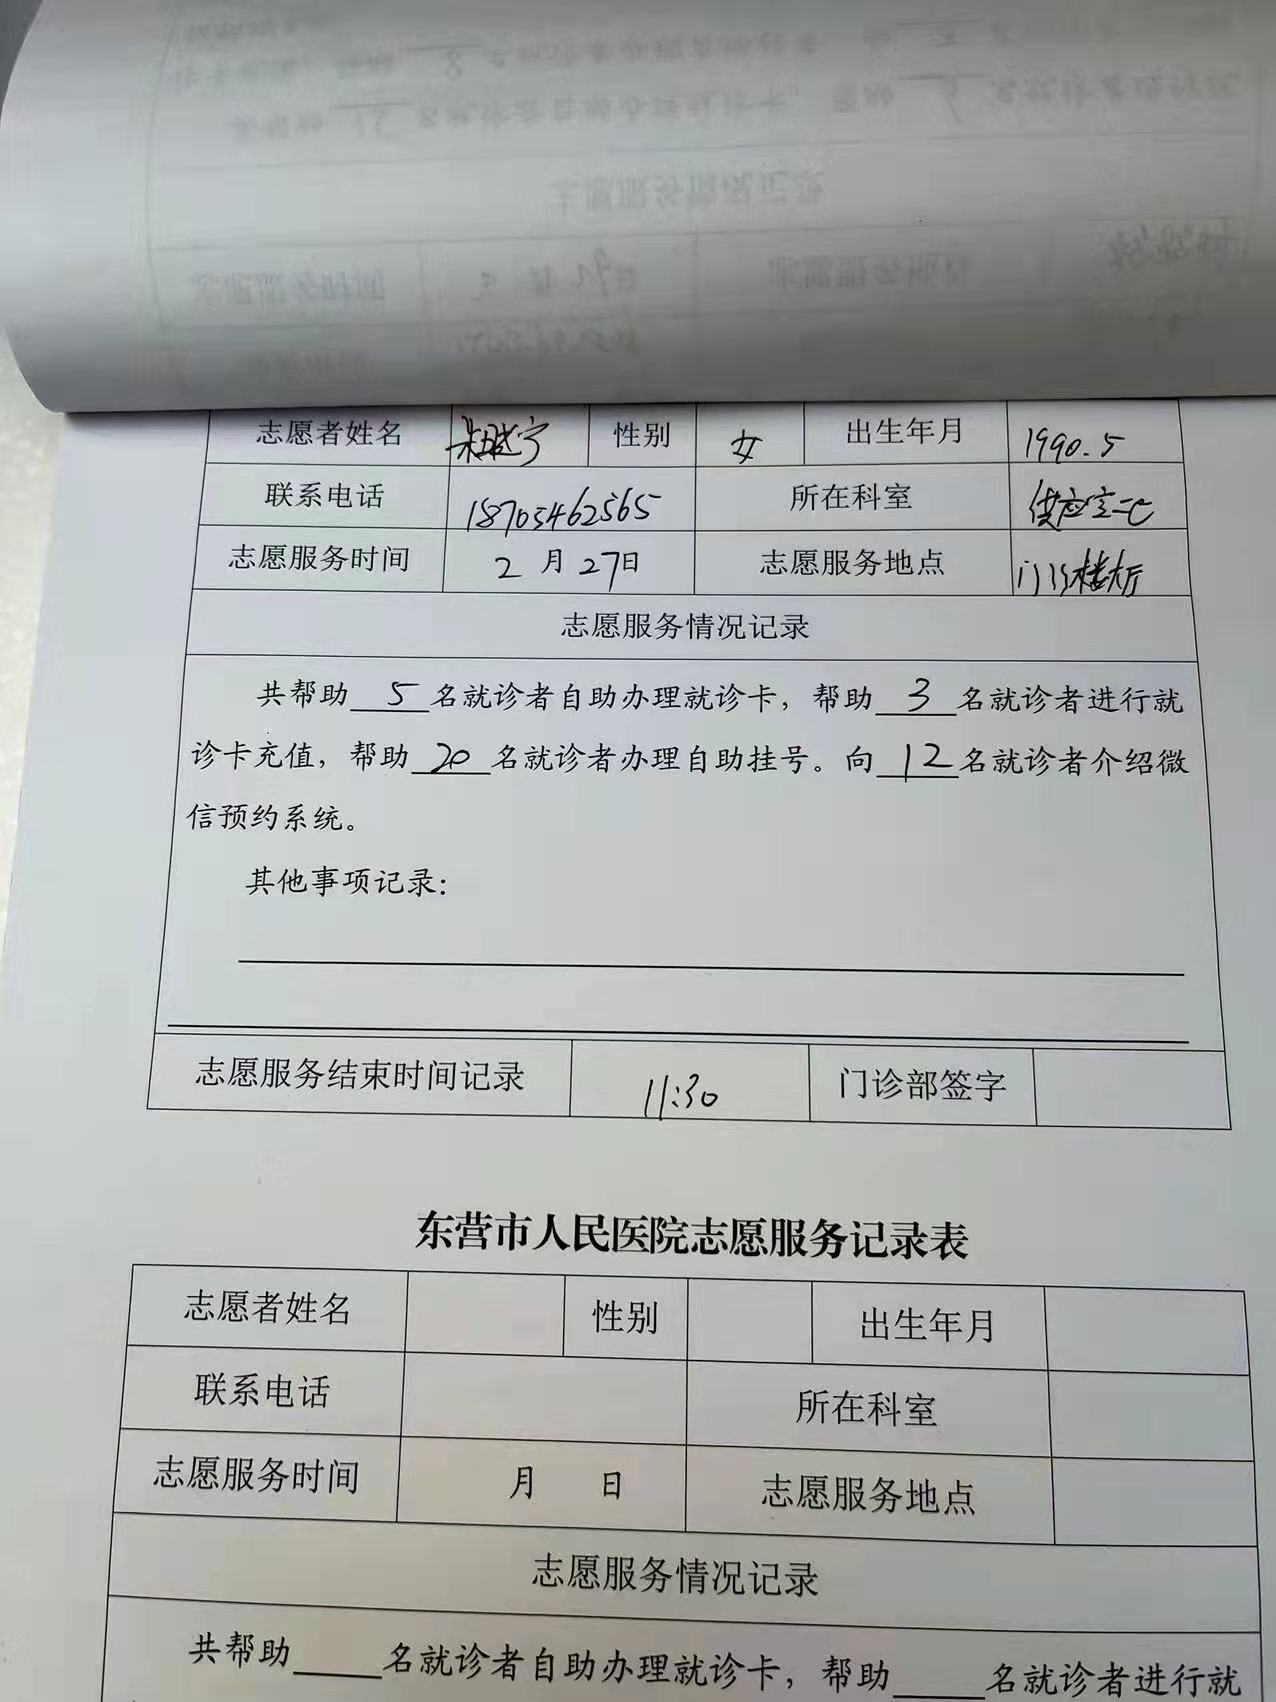 志愿者姓名 性别 女 出生年月 1990.5
联系电话 18705462565 所在科室 供应室
志愿服务时间 2月27日 志愿服务地点 门诊楼大厅
志愿服务情况记录
共帮助 5 名就诊者自助办理就诊卡，帮助 3 名就诊者进行就
诊卡充值，帮助 20 名就诊者办理自助挂号。向 12 名就诊者介绍微
信预约系统。
其他事项记录：
志愿服务结束时间记录 11:30 门诊部签字
东营市人民医院志愿服务记录表
志愿者姓名 性别 出生年月
联系电话 所在科室
志愿服务时间 月 日 志愿服务地点
志愿服务情况记录
共帮助 名就诊者自助办理就诊卡，帮助 名就诊者进行就